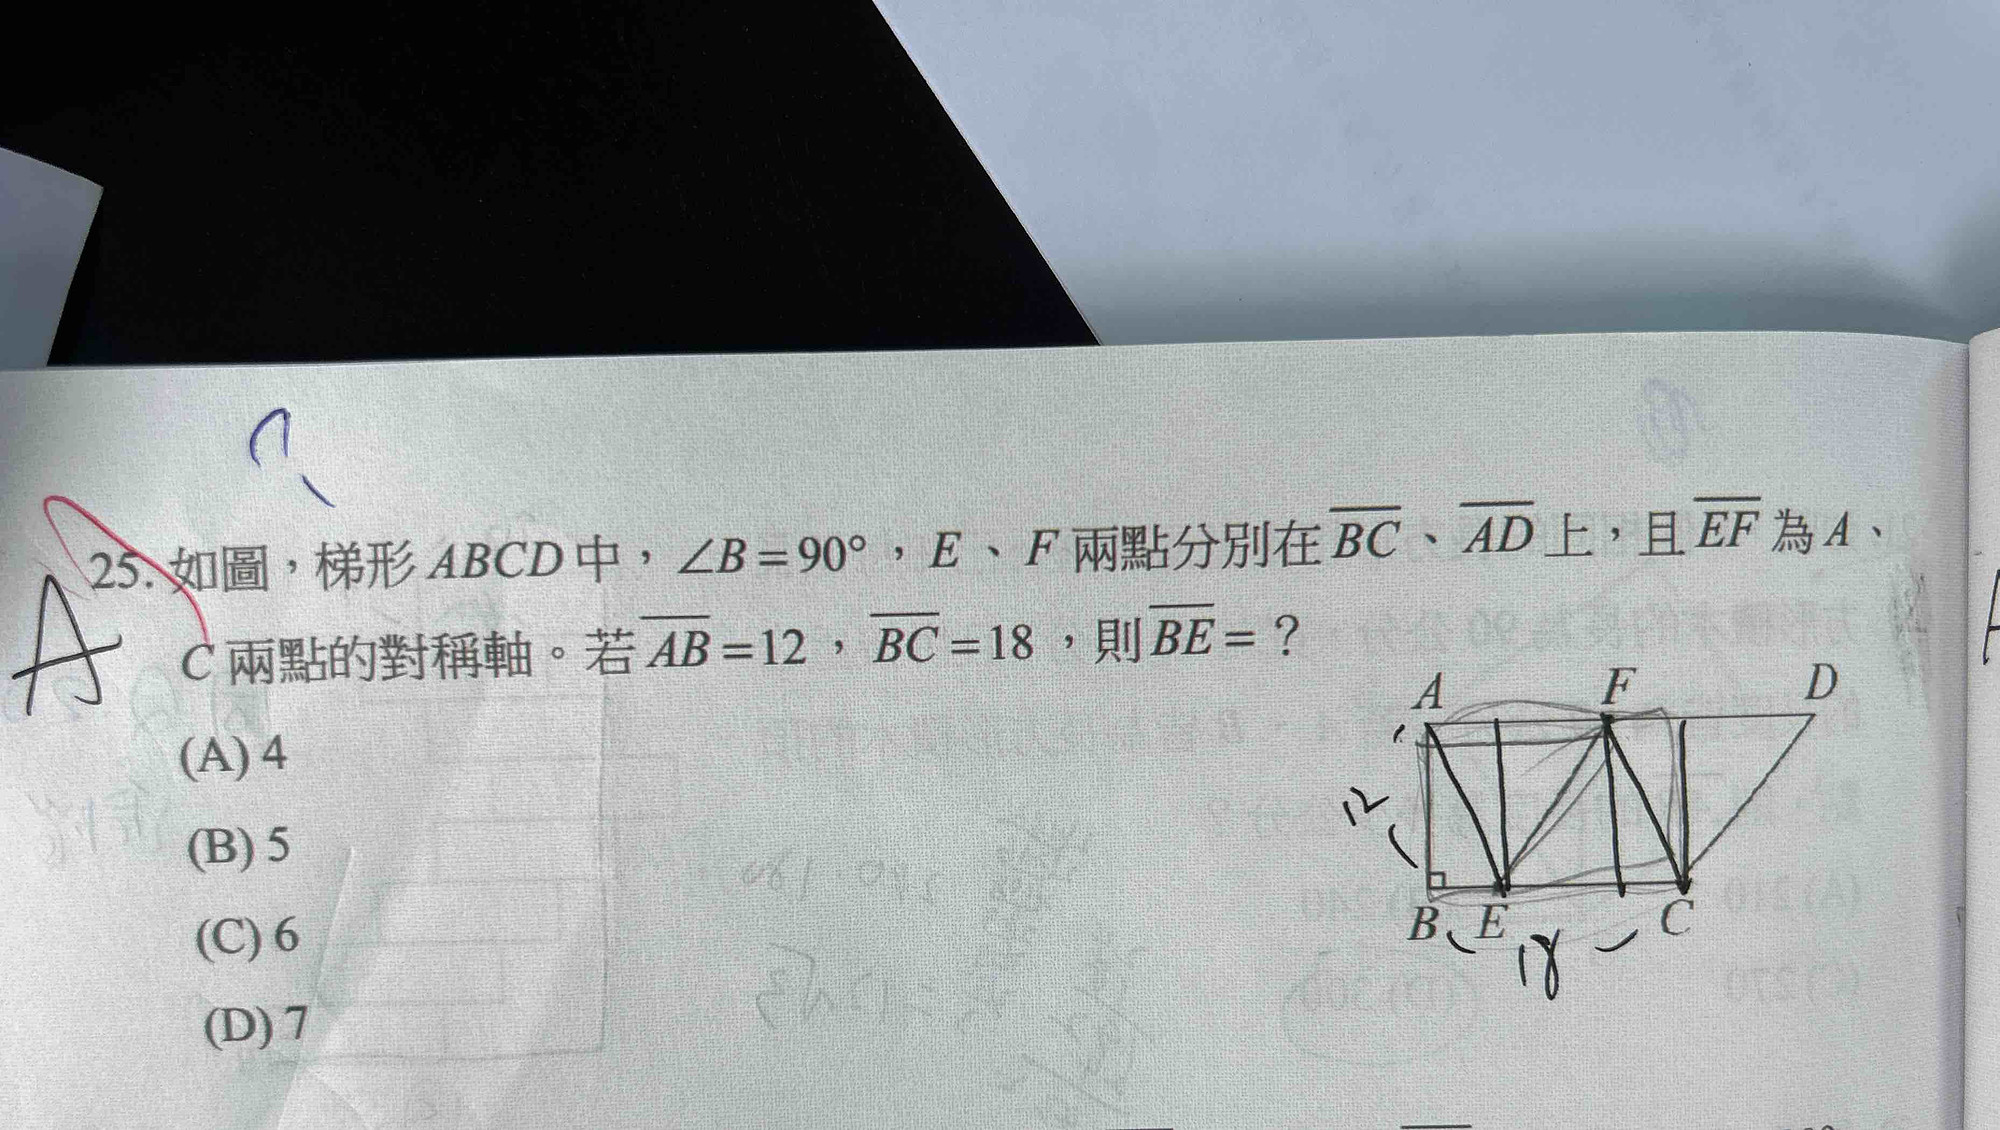 25. 如圖，梯形 ABCD 中，∠B=90°，E、F 兩點分別在 BC、AD 上，且 EF 為 A、
A
C 兩點的對稱軸。若 AB=12，BC=18，則 BE=？
(A) 4
(B) 5
(C) 6
(D) 7
A F D
12
B E C
18